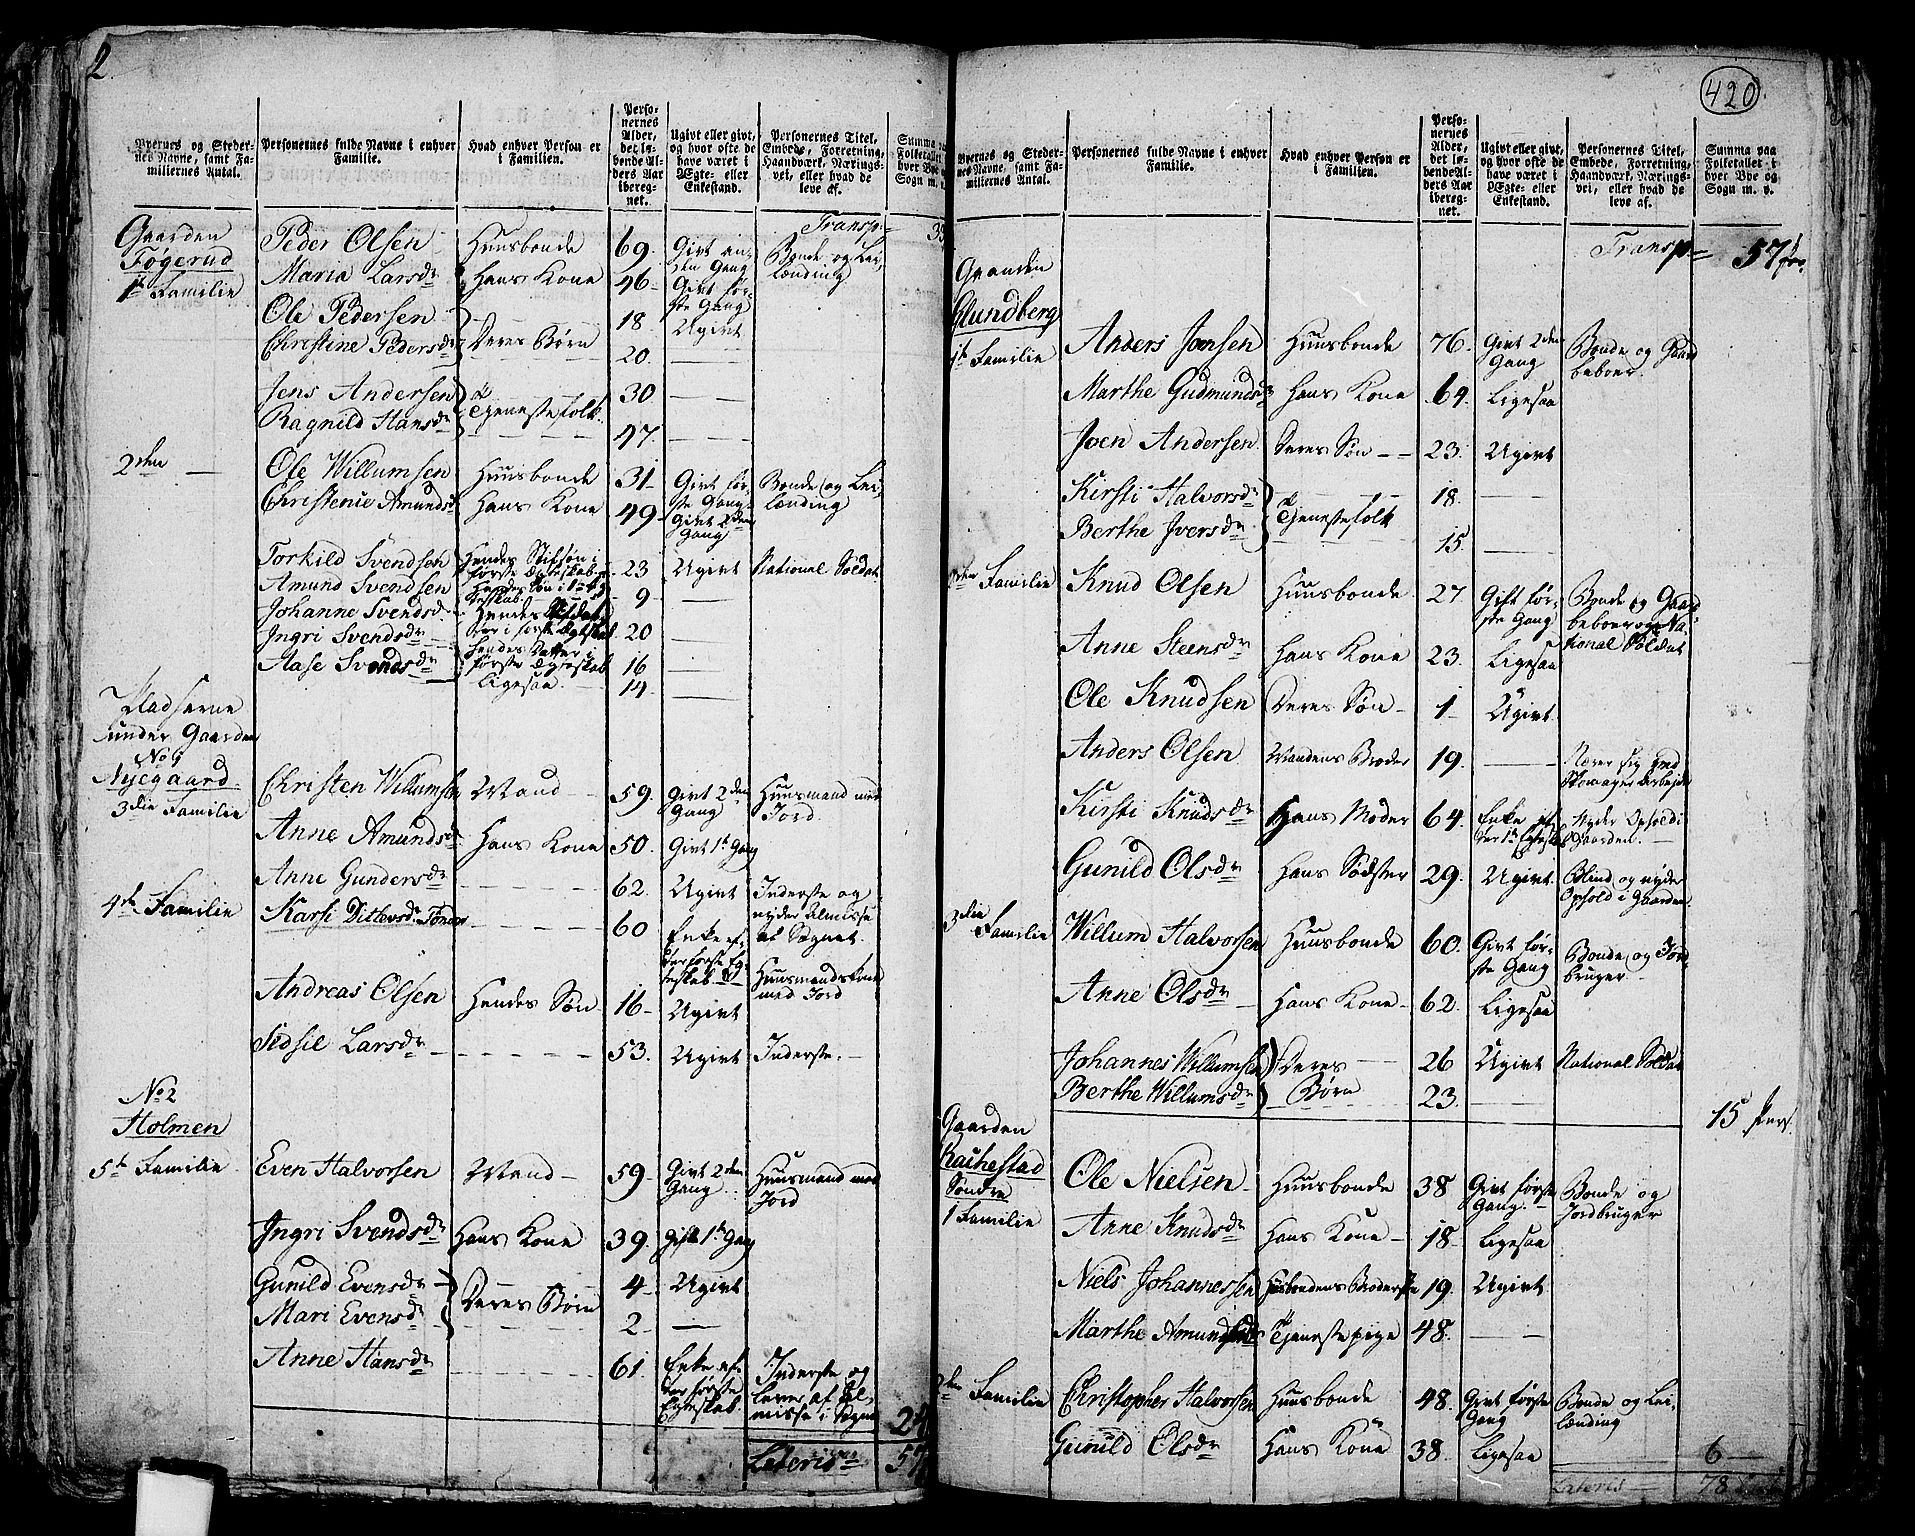 2
420
Byernes og Stedernes Navne, samt Familiernes Antal.
Personernes fulde Navne i enhver Familie.
Hvad enhver Person er i Familien.
Personernes Alder, det løbende Alders Aar iberegnet.
Ugivt eller givt, og hvor ofte de have været i Ægte- eller Enkestand.
Personernes Titel, Embede, Forretning, Haandværk, Næringsvei, eller hvad de leve af.
Summa paa Folketallet i hver Bye og Sogn m. v.
Transp.
Gaarden
Fogerud
1te Familie
Peder Olsen Huusbonde 69. Givt anden Gang Bonde og Leilænding
Maria Larsdr Hans Kone 46 Givt første Gang
Ole Pedersen 18. Ugivt
Christine Pedersdr Deres Børn 20.
Jens Andersen 30
Ragnild Hansdr Tjenestefolk 47.
2den
Ole Willumsen Huusbonde 31 Givt første Gang Bonde og Leilænding
Christenie Amundsdr Hans Kone 49 Givt 2den Gang
Torkild Svendsen Hendes Stifsøn i første Ægteskab 23 Ugivt National Soldat
Amund Svendsen 9
Johanne Svendsdr 20
Ingri Svendsdr Hendes Datter i første Ægteskab 16
Aase Svendsdr Ligesaa 14
Pladserne
under Gaarden
Nyegaard
3die Familie
Christen Willumsen Mand 59. Givt 2den Gang Huusmand med Jord
Anne Amundsdr Hans Kone 50. Givt 1te Gang
Anne Gundersdr 62. Ugivt Inderste og nyder Almisse af Sognet
4de Familie
Karsi 60 Enke efter første Egteskab Huusmandskone med Jord
Andreas Olsen Hendes Søn 16 Ugivt
Sidsil Larsdr 53. Ugivt Inderste.
No 2
Holmen
5te Familie
Even Halvorsen Mand 59 Givt 2den Gang Huusmand med Jord
Ingri Svendsdr Hans Kone 39. Gift 1te Gang
Gunild Evensdr Deres Børn 4 Ugivt
Mari Evensdr 2
Anne Hansdr 61. Enke efter første Egteskab Inderste og lever af Almisse i Sognet
24
Lateris 57
Byernes og Stedernes Navne, samt Familiernes Antal.
Personernes fulde Navne i enhver Familie.
Hvad enhver Person er i Familien.
Personernes Alder, det løbende Alders Aar iberegnet.
Ugivt eller givt, og hvor ofte de have været i Ægte- eller Enkestand.
Personernes Titel, Embede, Forretning, Haandværk, Næringsvei, eller hvad de leve af.
Summa paa Folketallet i hver Bye og Sogn m. v.
Transp 57
Gaarden
Glundberg
1te Familie
Anders Jonsen Huusbonde 76. Givt 2den Gang Bonde og Gaardbeboer
Marthe Gudmundsdr Hans Kone 64. Ligesaa
Joen Andersen Deres Søn 23. Ugivt
Kirsti Halvorsdr 18.
Berthe Iversdr Tjenestefolk 15
2den Familie
Knud Olsen Huusbonde 27 Gift første Gang Bonde og Gaardbeboer og National Soldat
Anne Steensdr Hans Kone 23. Ligesaa
Ole Knudsen Deres Søn 1 Ugivt
Anders Olsen Mandens Broder 19. Nærer sig med Skomager Arbejde
Kirsti Knudsdr Hans Moder 64. Enke efter 1te Egteskab Nyder Ophold i Gaarden.
Gunild Olsdr Hans Södster 29. Ugivt Blind og nyder Ophold i Gaarden
3die Familie
Willum Halvorsen Huusbonde 60. Givt første Gang Bonde og Jordbruger
Anne Olsdr Hans Kone 62. Ligesaa
Johannes Willumsen Deres 26 Ugivt National Soldat
Berthe Willumsdr Børn 23.
15 Pers.
Gaarden
Søndre
1 Familie
Ole Nielsen Huusbonde 38 Givt første Gang. Bonde og Jordbruger
Anne Knudsdr Hans Kone 18. Ligesaa
Niels Johannessen 19. Ugivt
Marthe Tjenestepige 48.
2den Familie
Christopher Halvorsen Huusbonde 48. Givt første Gang Bonde og Leilænding
Gunild Olsdr Hans Kone 38. Ligesaa
6
Lateris 78